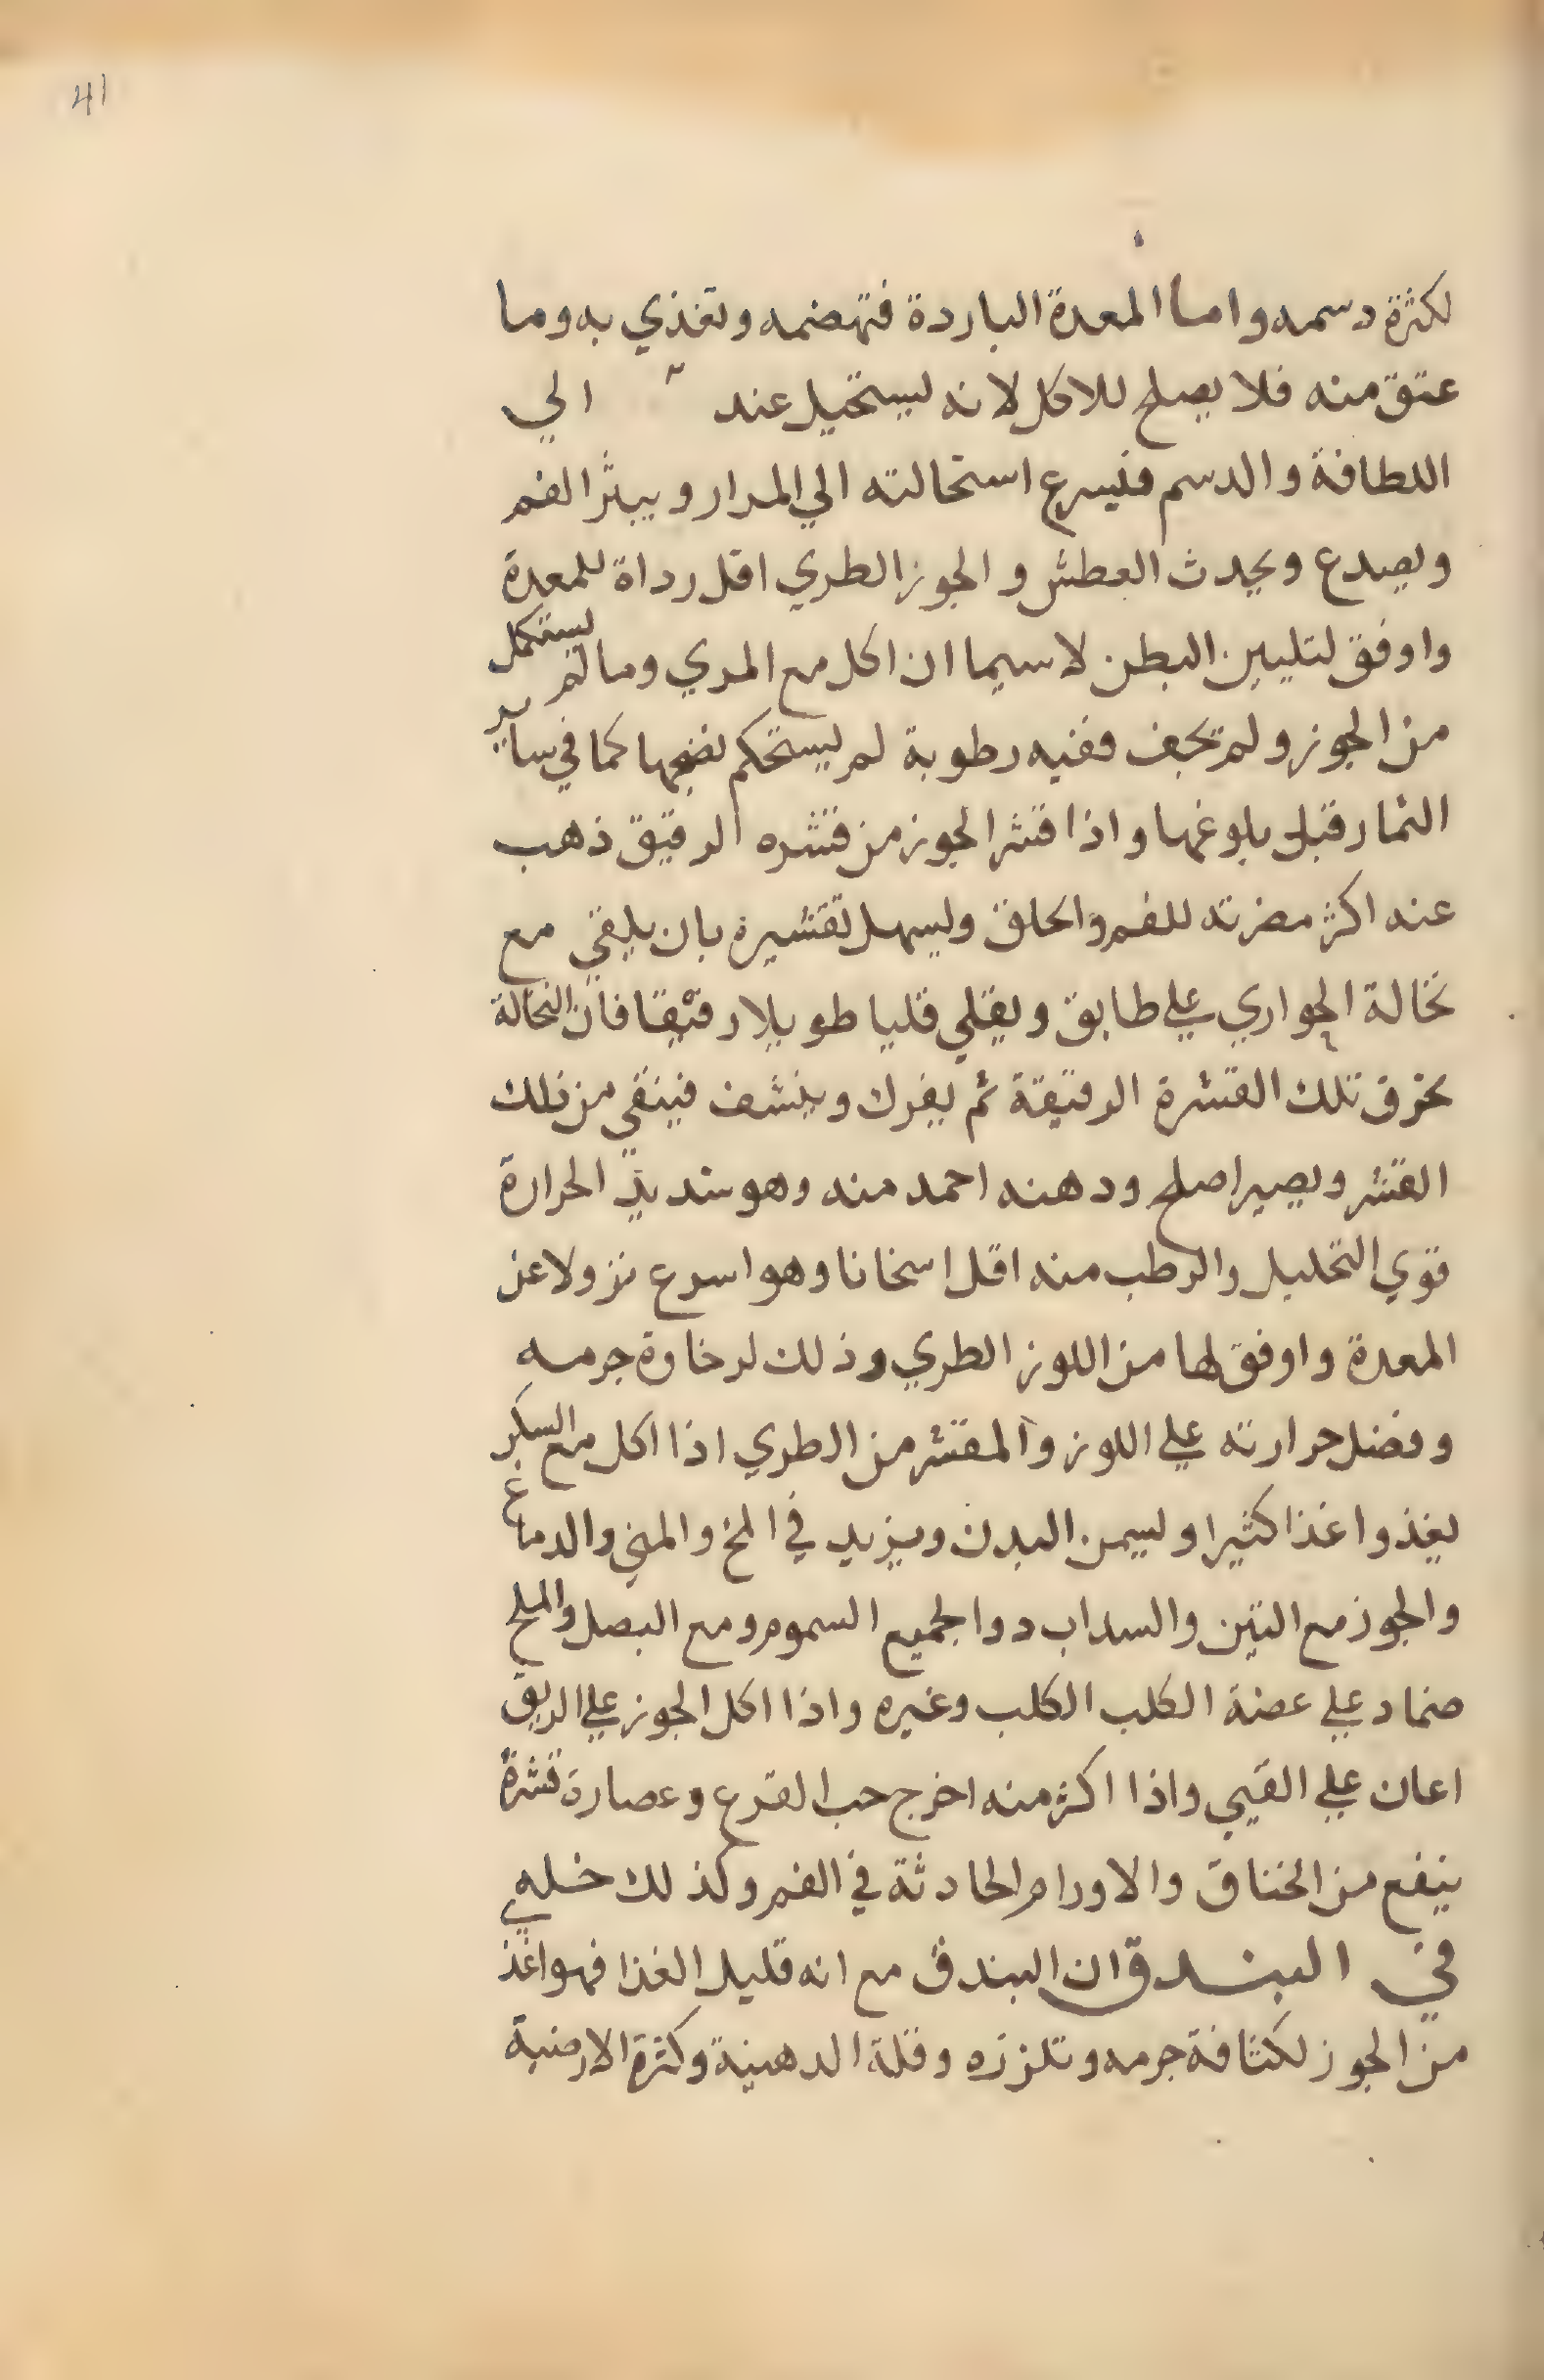 41
لكثرة دسمه واما المعدة الباردة فتهضمه وتغذي به وما
عتق منه فلا يصلح للاكل لانه ليستحيل عند الي
اللطافة والدسم فيسرع استحالته الي المرار ويبثر الفم
ويصدع ويحدث العطش والجوز الطري اقل رداة للمعدة
واوفق لتليين البطن لاسيما ان اكل مع المري وما لم يستكمل
من الجوز ولم يجف ففيه رطوبة لم يستحكم نضجها كما في ساير
الثمار قبل بلوغها واذا قشر الجوز من قشره الرقيق ذهب
عنه اكثر مضرته للفم والحلق ويسهل تقشيره بان يلقي مع
نخالة الحواري علي طابق ويقلي قليا طويلا رقيقا فان النخالة
تحرق تلك القشرة الرقيقة ثم يفرك وينشف فينقي من تلك
القشر ويصير اصلح ودهنه احمد منه وهو شديد الحرارة
قوي التحليل والرطب منه اقل اسخانا وهو اسرع نزولا عن
المعدة واوفق لها من اللوز الطري وذلك لرخاوة جرمه
وفضل حرارته علي اللوز والمقشر من الطري اذا اكل مع السكر
يغذوا غذا كثيرا ويسمن البدن ويزيد في المخ والمني والدماغ
والجوز مع التين والسداب دوا لجميع السموم ومع البصل والملح
ضماد علي عضة الكلب الكلب وغيره واذا اكل الجوز علي الريق
اعان علي القيي واذا اكثر منه اخرج حب القرع وعصارة قشرة
ينفع من الخناق والاورام الحادثة في الفم وكذلك خله
في البندق ان البندق مع انه قليل الغذا فهو اغذ
من الجوز لكثافة جرمه وتلززه وقلة الدهنية وكثرة الارضية